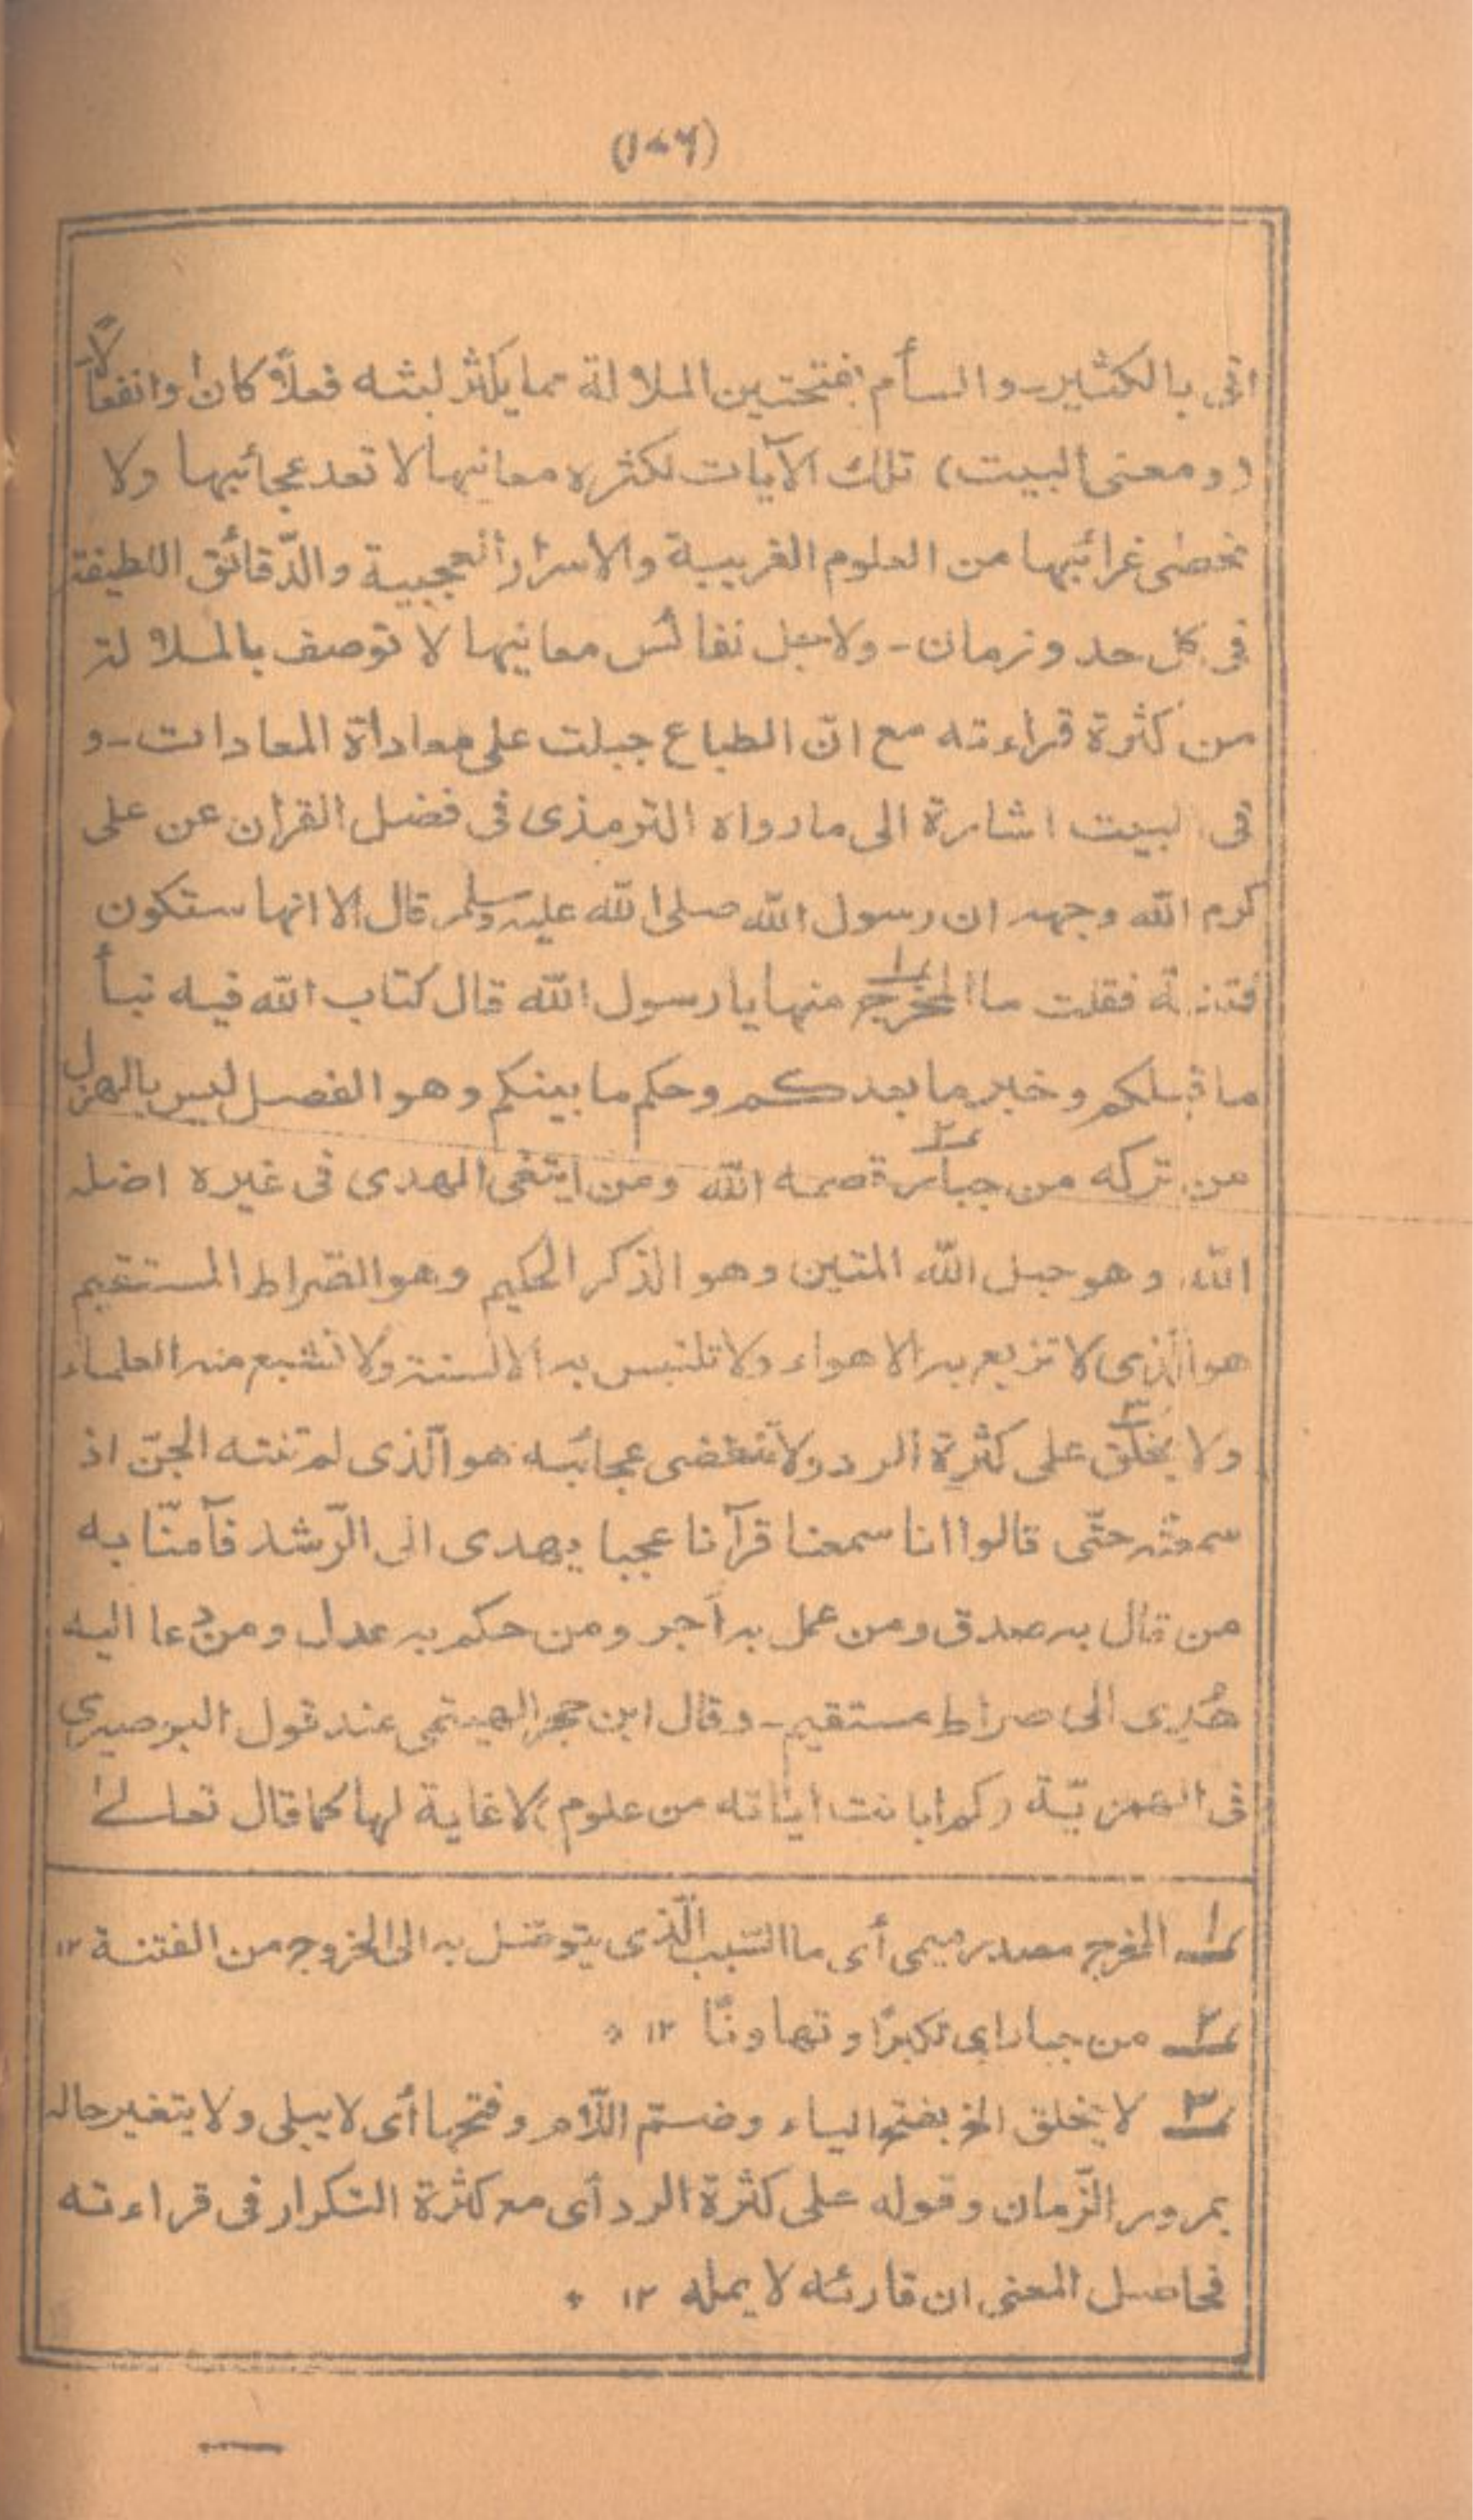 (١٧٦)
اتى بالكثير ـ والسأم بفتحتين الملالة مما يكثر لبثه فعلاً كان او انفعالاً
(ومعنى البيت) تلك الآيات لكثرة معانيها لا تعد عجائبها ولا
تحصى غرائبها من العلوم الغريبة والاسرار العجيبة والدّقائق اللطيفة
فى كل حد وزمان ـ ولاجل نفائس معانيها لا توصف بالملالة
من كثرة قراءته مع انّ الطباع جبلت على معاداة المعادات ـ و
فى البيت اشارة الى ما رواه الترمذى فى فضل القران عن على
كرم الله وجهه ان رسول الله صلى الله عليه وسلم قال الا انها ستكون
فتنة فقلت ما المخرج منها يا رسول الله قال كتاب الله فيه نبأ
ما قبلكم وخبر ما بعدكم وحكم ما بينكم وهو الفصل ليس بالهزل
من تركه من جبار قصمه الله ومن ابتغى الهدى فى غيره اضله
الله وهو حبل الله المتين وهو الذكر الحكيم وهو الصّراط المستقيم
هو الّذى لا تزيع به الاهواء ولا تلتبس به الالسنة ولا تشبع منه العلماء
ولا يخلق على كثرة الرد ولا تنقضى عجائبه هو الّذى لم تنته الجنّ اذ
سمعته حتّى قالوا انا سمعنا قرآنا عجبا يهدى الى الرّشد فآمنّا به
من قال به صدق ومن عمل به أجر ومن حكم به عدل ومن دعا اليه
هُدِى الى صراط مستقيم ـ وقال ابن حجر الهيتمى عند قول البوصيرى
فى الهمزيّة (كم ابانت اياته من علوم) لا غاية لها كما قال تعالى
١ المخرج مصدر ميمى أى ما السّبب الّذى يتوصّل به الى الخروج من الفتنة ١٢
٢ من جبار اى تكبرًا وتهاونًا ١٢ *
٣ لا يخلق الخ بفتح الياء وضمّ اللّام وفتحها أى لا يبلى ولا يتغير حاله
بمرور الزّمان وقوله على كثرة الرد أى مع كثرة التكرار فى قراءته
فحاصل المعنى ان قارئه لا يمله ١٢ *